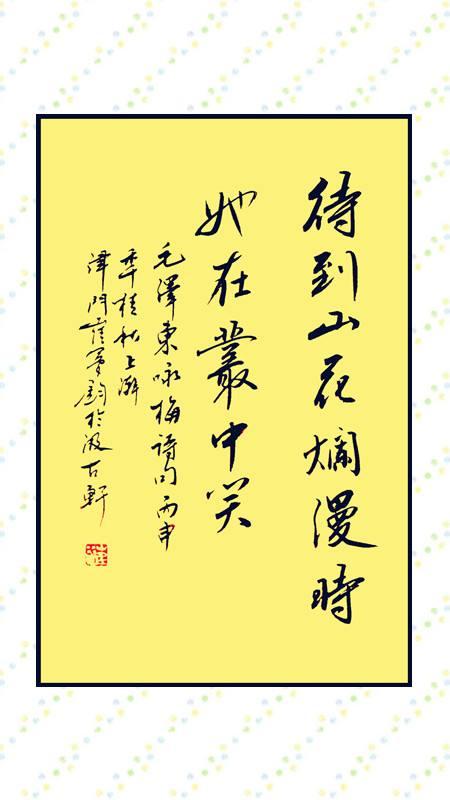 待到山花爛漫時
她在叢中笑
毛澤東咏梅詩句丙申
年桂秋上澣
津門崔夢鈞於汲古軒